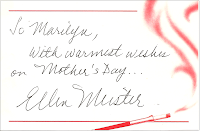 To Marilyn,
With warmest wishes
on Mother's Day...
Ellen Meister